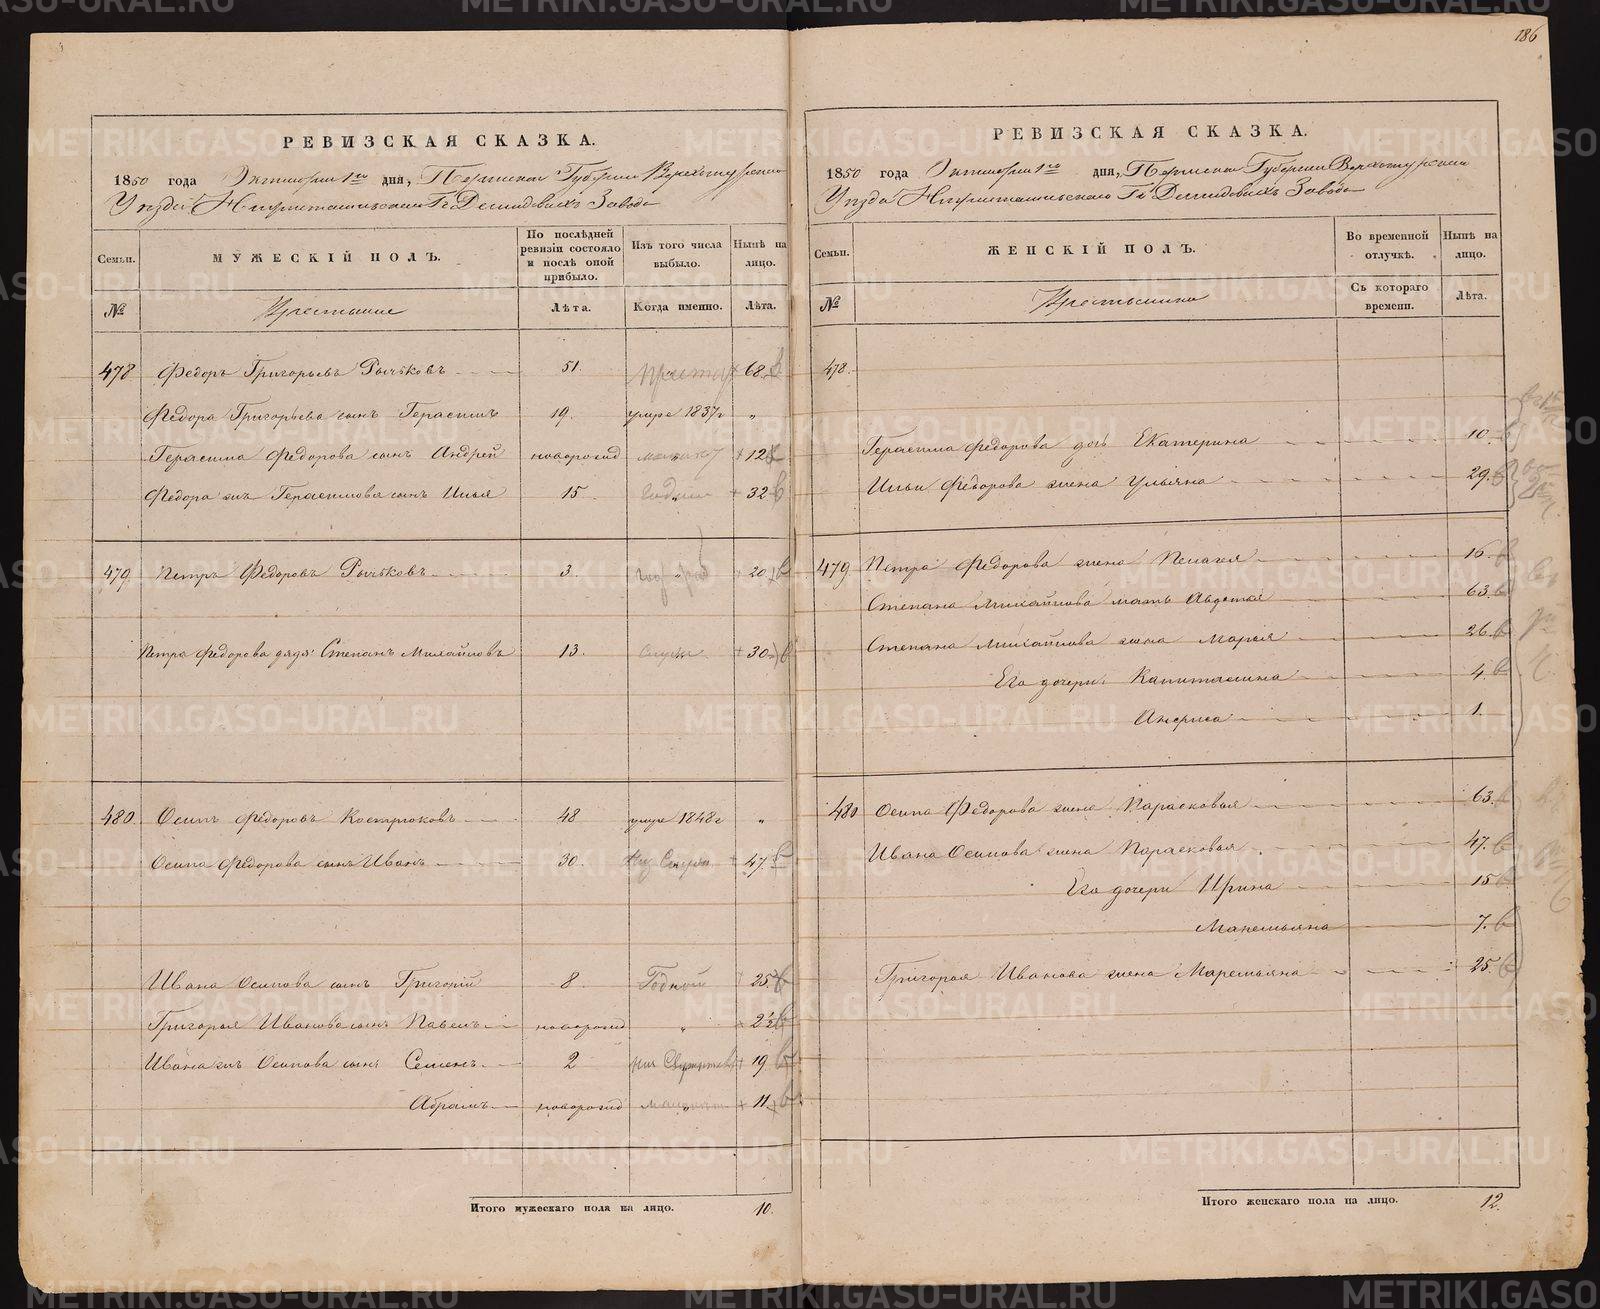 186
РЕВИЗСКАЯ СКАЗКА.
1850 года Октября 1го дня, Пермской Губернии Верхотурскаго
Уѣзда Нижнетагильскаго Гг. Демидовыхъ Завода
Семьи. МУЖЕСКІЙ ПОЛЪ. По послѣдней ревизіи состояло и послѣ оной прибыло. Изъ того числа выбыло. Нынѣ на лицо.
№ Крестьяне Лѣта. Когда именно. Лѣта.
478 Федоръ Григорьевъ Рычковъ 51 68
Федора Григорьева сынъ Герасимъ 19. умре 1837г "
Герасима Федорова сынъ Андрей новорожд 12
Федора жъ Герасимова сынъ Илья 15 32
479 Петръ Федоровъ Рычковъ 3. 20
Петра Федорова дядя Степанъ Михайловъ 13. 30
480 Осипъ Федоровъ Костюковъ 48 умре 1848г "
Осипа Федорова сынъ Иванъ 30. 47
Ивана Осипова сынъ Григорій 8. Годной 25
Григорья Иванова сынъ Павелъ новорожд " 2½
Ивана жъ Осипова сынъ Семенъ 2 19
Абрамъ новорожд 11
Итого мужескаго пола на лицо. 10.
РЕВИЗСКАЯ СКАЗКА.
1850 года Октября 1го дня, Пермской Губернии Верхотурскаго
Уѣзда Нижнетагильскаго Гг. Демидовыхъ Завода
Семьи. ЖЕНСКІЙ ПОЛЪ. Во временной отлучкѣ. Нынѣ на лицо.
№ Крестьянки Съ котораго времени. Лѣта.
478.
Герасима Федорова дочь Екатерина 10
Ильи Федорова жена Ульяна 29.
479. Петра Федорова жена Пелагея 16
Степана Михайлова мать Авдотья 63.
Степана Михайлова жена Марья 26
Его дочери Капитолина 4
Анфиса 1.
480 Осипа Федорова жена Парасковья 63
Ивана Осипова жена Парасковья 47.
Его дочери Ирина 15
Маремьяна 7.
Григорья Иванова жена Маремьяна 25.
Итого женскаго пола на лицо. 12.
METRIKI.GASO-URAL.RU